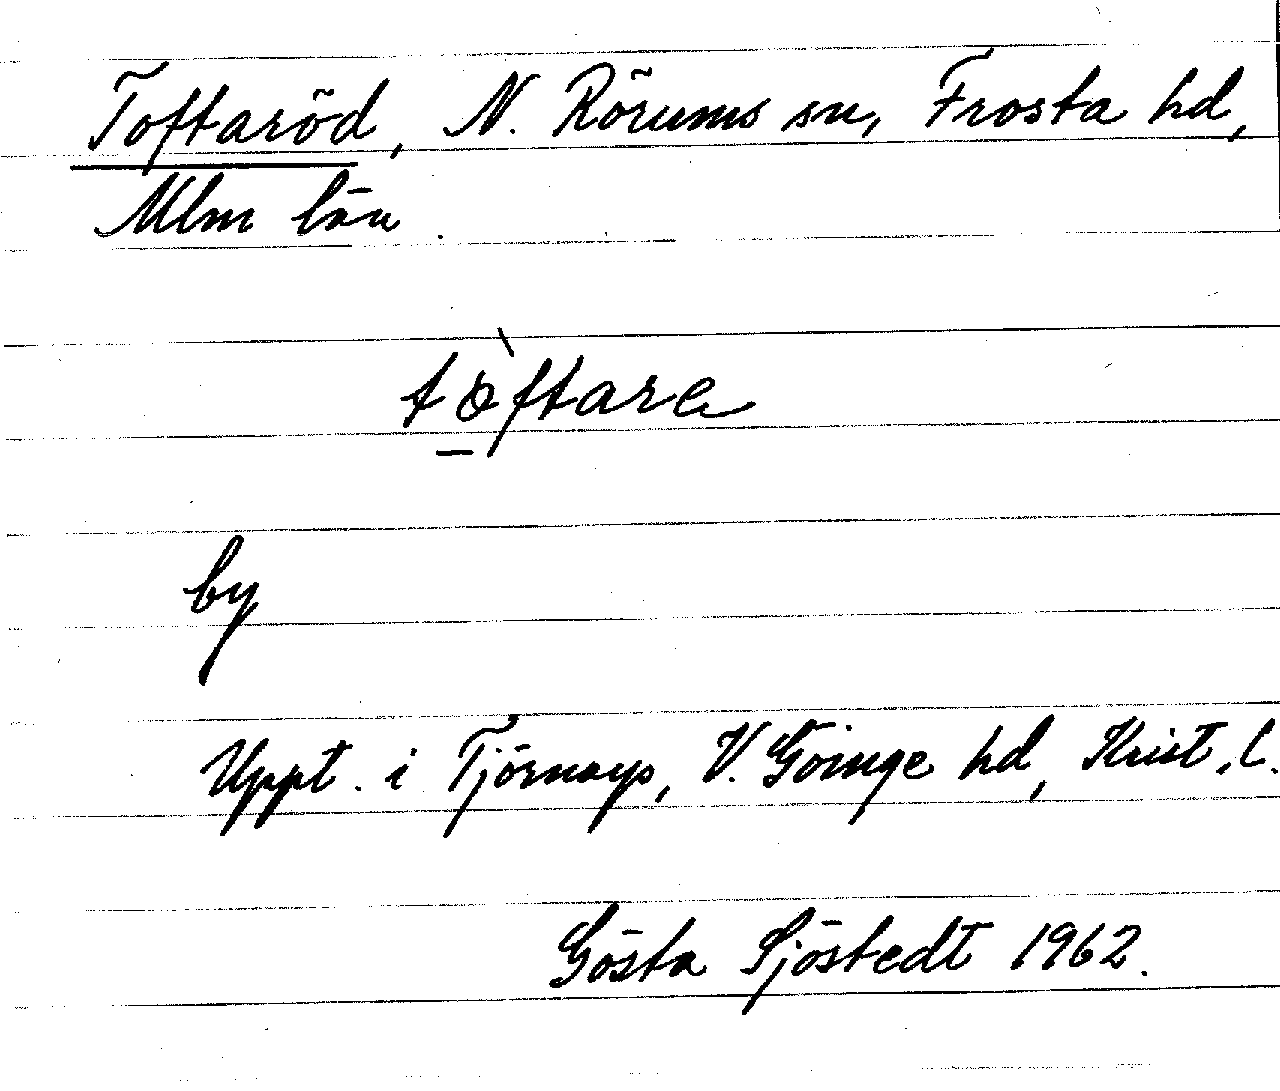 Toftaröd, N. Rörums sn, Frosta hd,
Mlm län.
tòftara
by
Uppt. i Tjörnarps, V. Göinge hd, Krist. l.
Gösta Sjöstedt 1962.